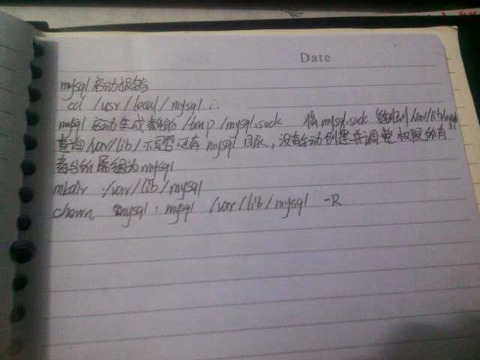 Date
mysql启动报错
cd /usr/local/mysql
mysql 启动生成 /tmp/mysql.sock 将mysql.sock /var/lib/mysql
查询/var/lib/下是否有mysql目录,没有手动创建并调整权限所有
者和所属组为mysql
mkdir /var/lib/mysql
chown mysql:mysql /var/lib/mysql -R